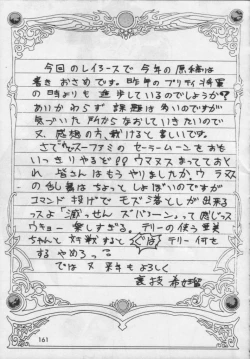 今回のレイアースで今年の原稿は
書きおさめです。昨年のプリティ将軍
の時よりも進歩しているのでしょうか?
あいかわらず課題は多いのですが
気づいた所からなおしていきたいので
又、感想の方、戴けると嬉しいです。
さて、スーファミのセーラームーンをおも
いっきりやるぞ!! ウマヌスまってておと
れ 皆さんはもうやりましたか。ウラヌス
の色違はちょっとしょぼいのですが
コマンド投げで モズ落としが出来る
っスよ「滅っせん ズバァーン」って感じっス
ウキョー 楽しすぎる。テリーの使う亜美
ちゃんと対戦すると ぐは! テリー何を
する やめろっ
では 又 来年もよろしく
裏技 希好瑠
161